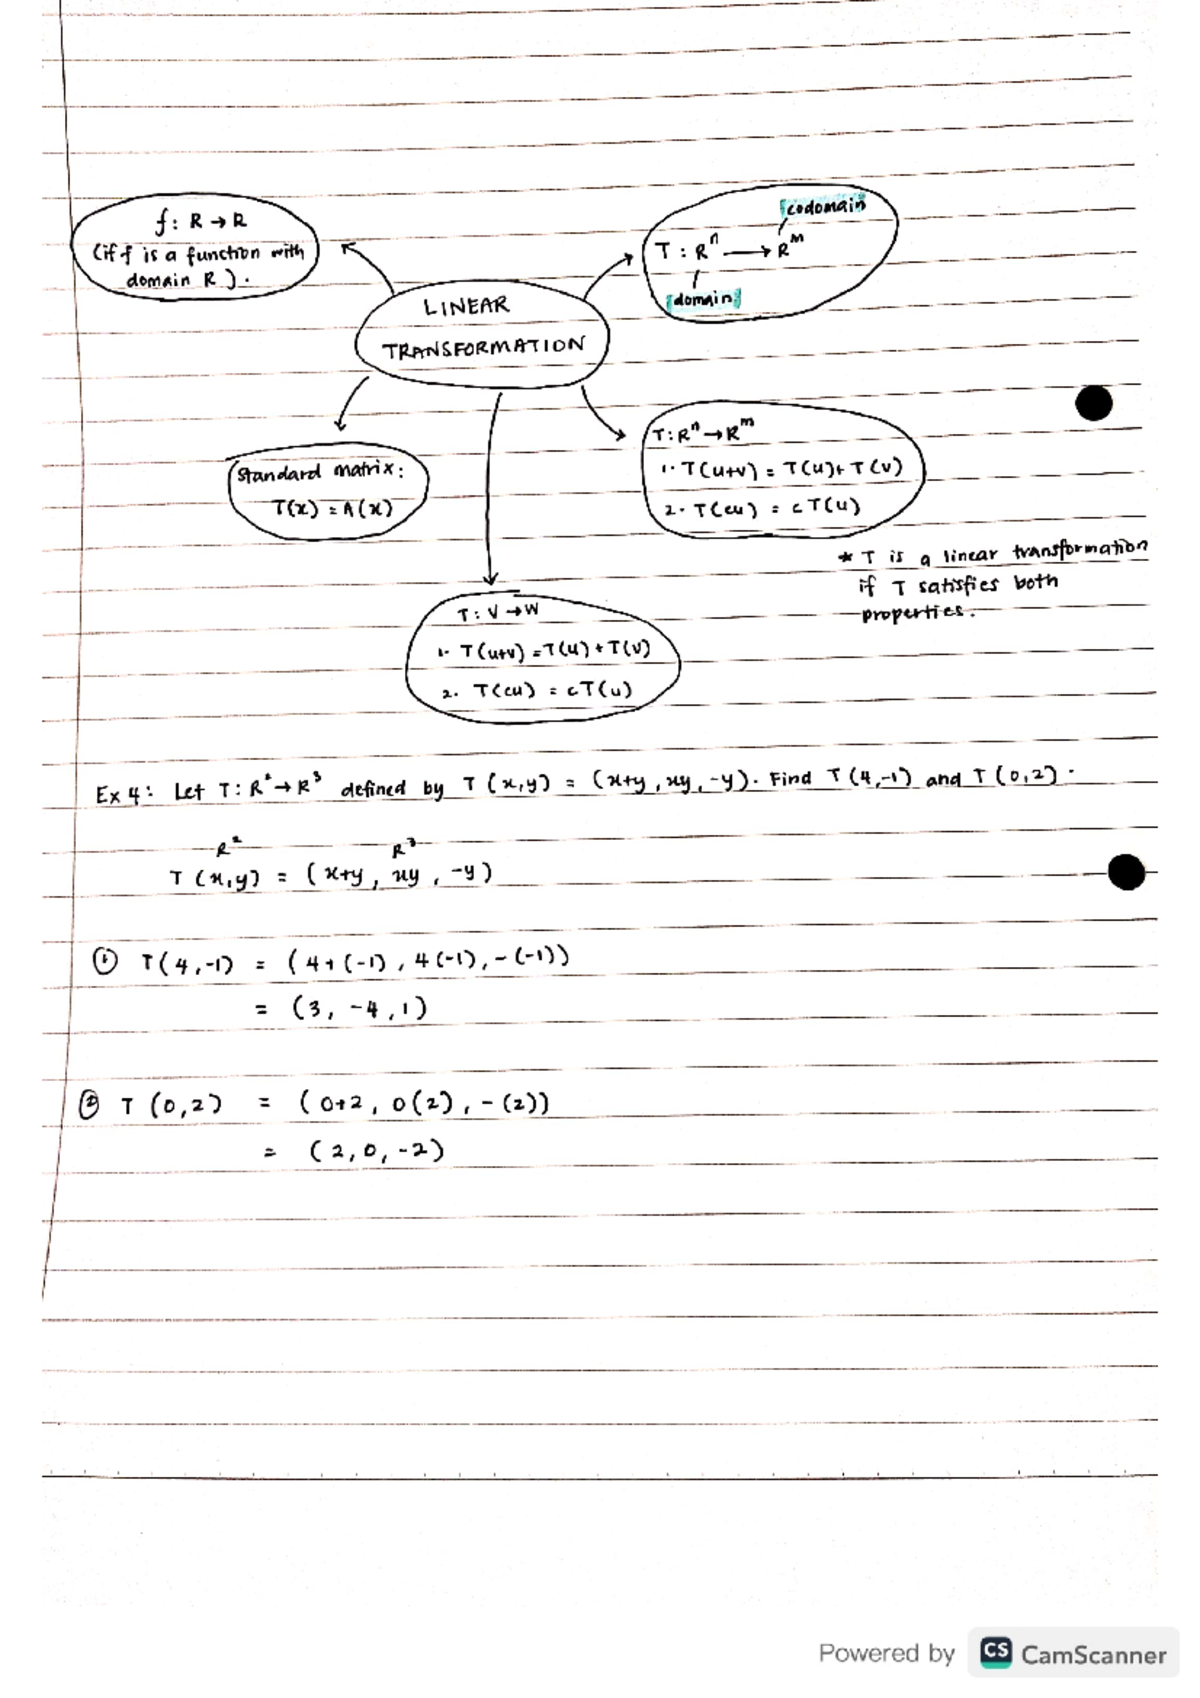 f: R → R
(if f is a function with
domain R).
LINEAR
TRANSFORMATION
codomain
T: Rⁿ → Rᵐ
domain
Standard matrix:
T(x) = A(x)
T: Rⁿ → Rᵐ
1. T(u+v) = T(u)+ T(v)
2. T(cu) = cT(u)
* T is a linear transformation
if T satisfies both
properties.
T: V → W
1. T(u+v) = T(u) + T(v)
2. T(cu) = cT(u)
Ex 4: Let T: R² → R³ defined by T(x,y) = (x+y, xy, -y). Find T(4,-1) and T(0,2).
R² R³
T(x,y) = (x+y, xy, -y)
① T(4,-1) = (4+(-1), 4(-1), -(-1))
= (3, -4, 1)
② T(0,2) = (0+2, 0(2), -(2))
= (2, 0, -2)
Powered by CS CamScanner